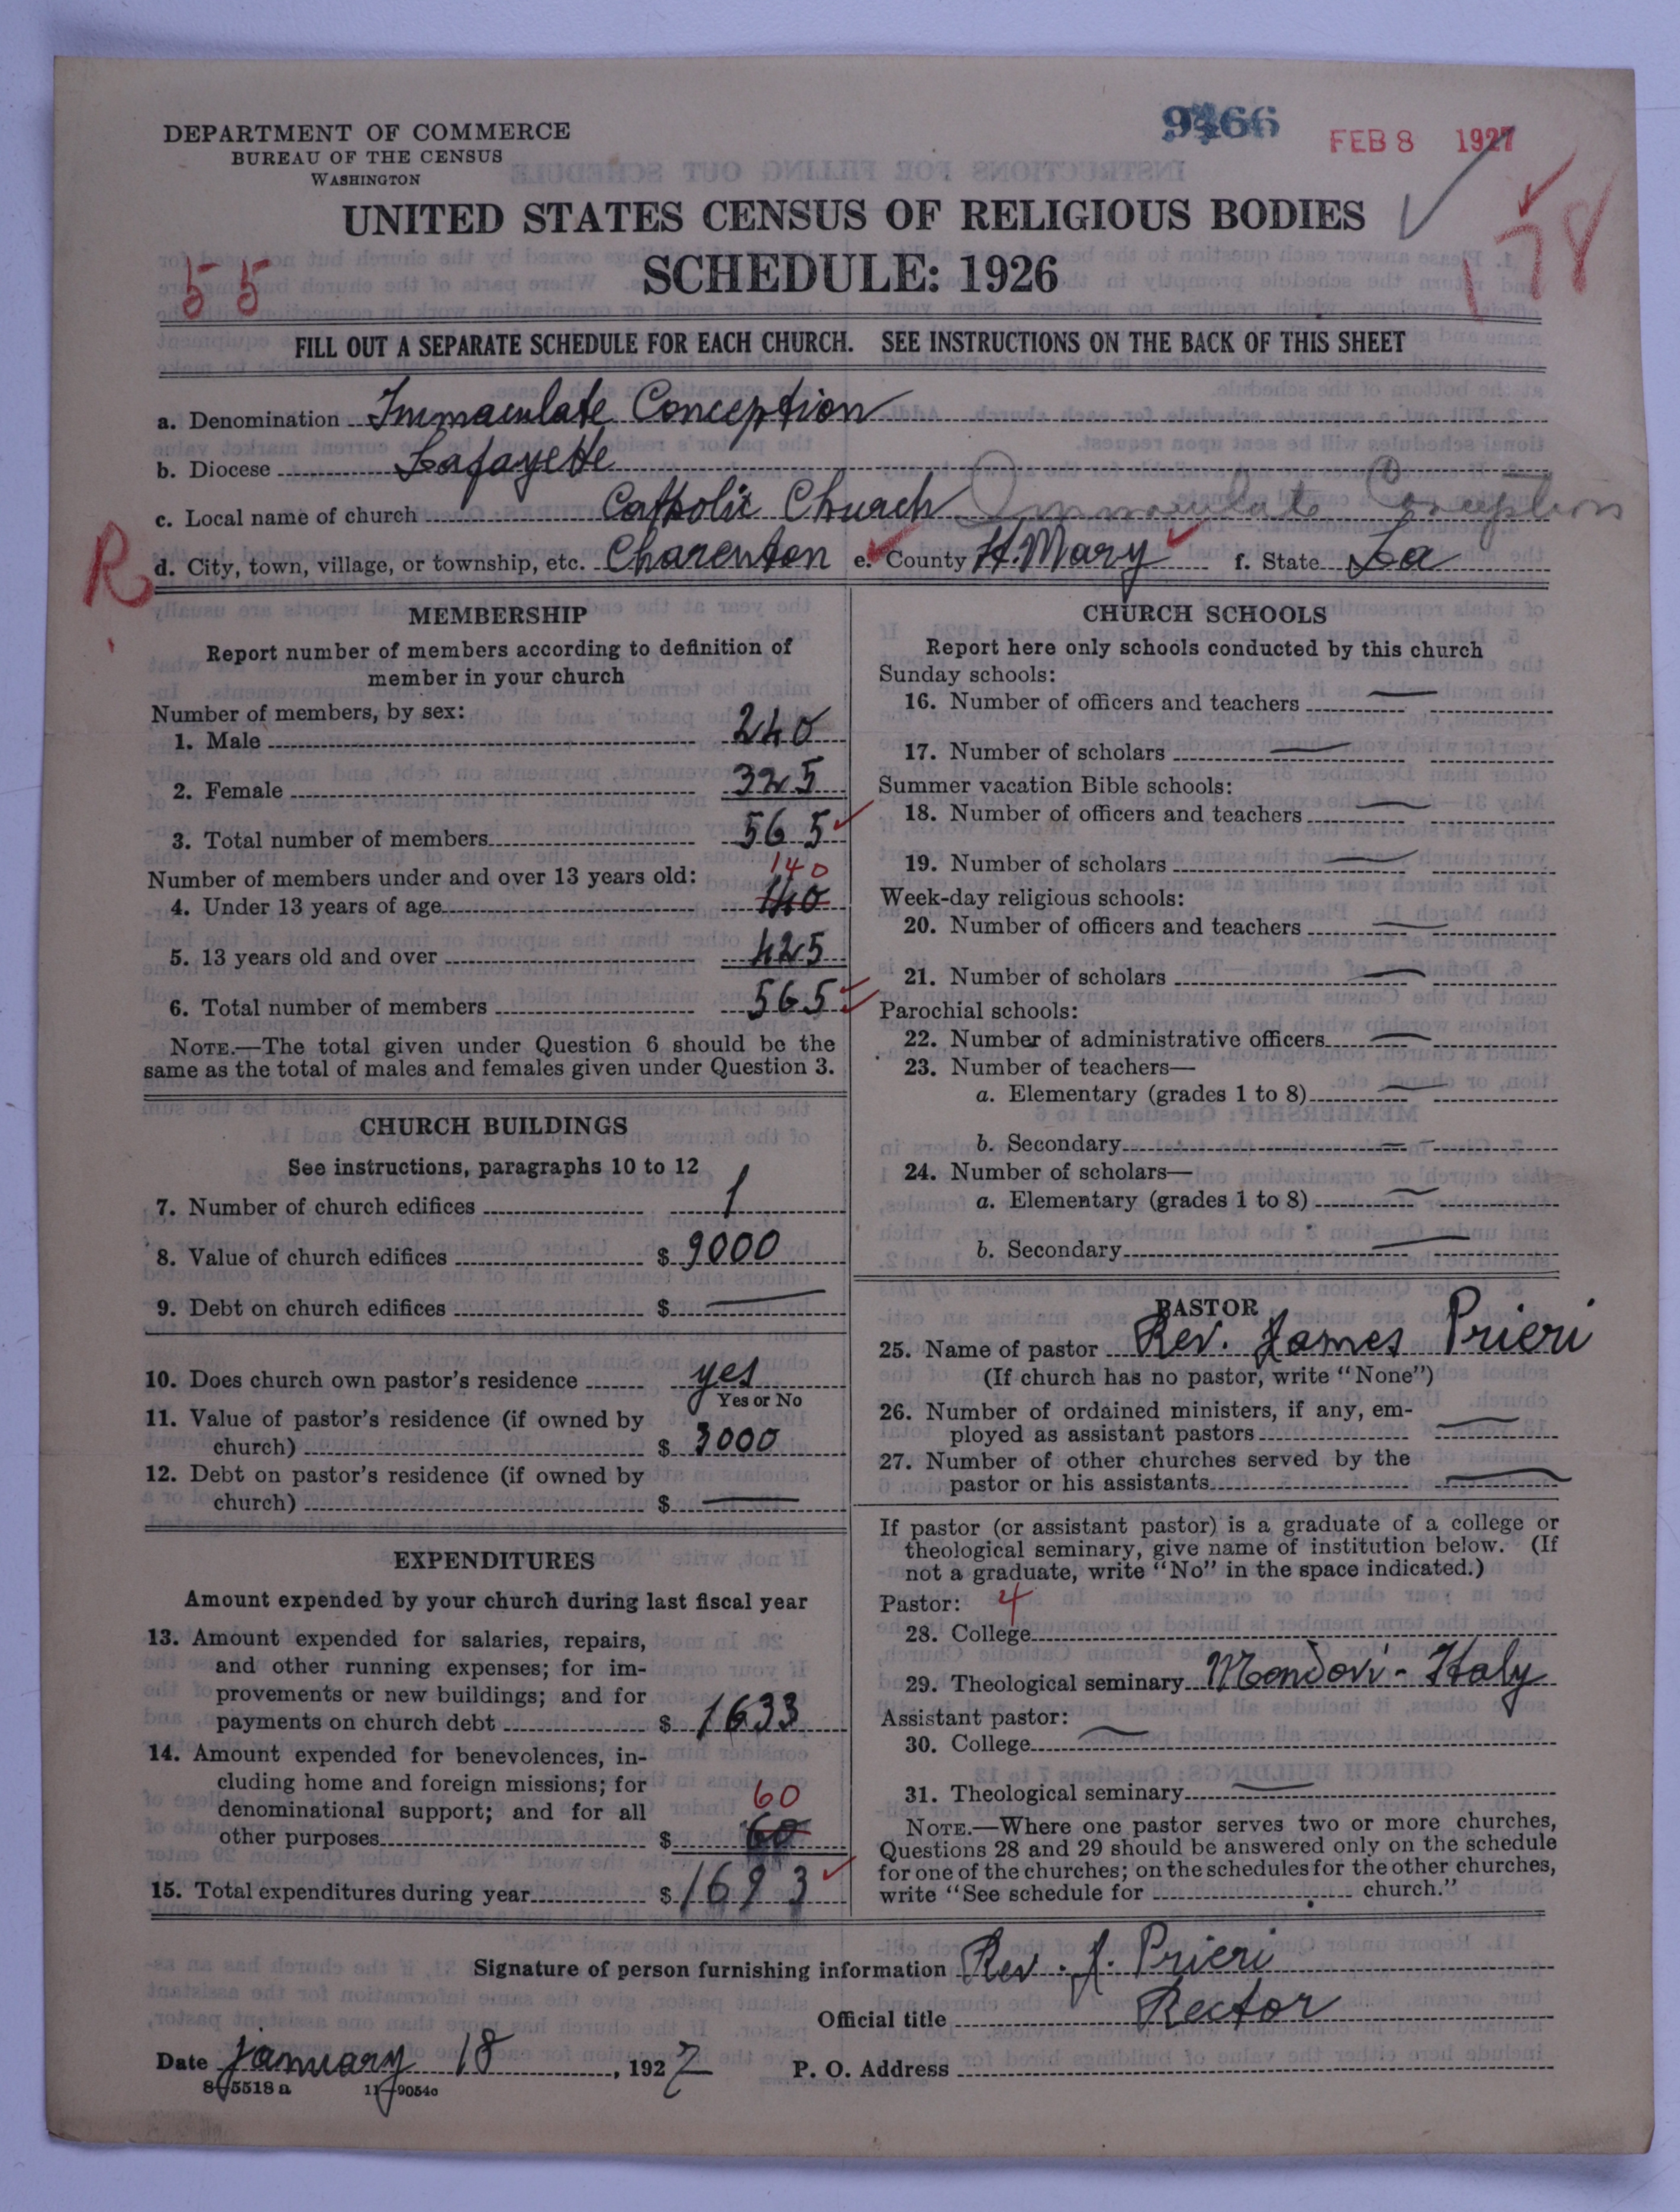 9466
FEB 8 1927
DEPARTMENT OF COMMERCE
BUREAU OF THE CENSUS
WASHINGTON
UNITED STATES CENSUS OF RELIGIOUS BODIES
SCHEDULE: 1926
55
178
FILL OUT A SEPARATE SCHEDULE FOR EACH CHURCH. SEE INSTRUCTIONS ON THE BACK OF THIS SHEET
a. Denomination Immaculate Conception
b. Diocese Lafayette
c. Local name of church Catholic Church Immaculate Conception
R
d. City, town, village, or township, etc. Charenton e. County St. Mary f. State La
MEMBERSHIP
Report number of members according to definition of
member in your church
Number of members, by sex:
1. Male 240
2. Female 325
3. Total number of members 565
Number of members under and over 13 years old:
140
4. Under 13 years of age 140
5. 13 years old and over 425
6. Total number of members 565
NOTE.—The total given under Question 6 should be the
same as the total of males and females given under Question 3.
CHURCH BUILDINGS
See instructions, paragraphs 10 to 12
7. Number of church edifices 1
8. Value of church edifices $ 9000
9. Debt on church edifices $ —
10. Does church own pastor's residence yes
Yes or No
11. Value of pastor's residence (if owned by
church) $ 3000
12. Debt on pastor's residence (if owned by
church) $ —
EXPENDITURES
Amount expended by your church during last fiscal year
13. Amount expended for salaries, repairs,
and other running expenses; for im-
provements or new buildings; and for
payments on church debt $ 1633
14. Amount expended for benevolences, in-
cluding home and foreign missions; for
denominational support; and for all
60
other purposes $ 60
15. Total expenditures during year $ 1693
CHURCH SCHOOLS
Report here only schools conducted by this church
Sunday schools:
16. Number of officers and teachers —
17. Number of scholars —
Summer vacation Bible schools:
18. Number of officers and teachers —
19. Number of scholars —
Week-day religious schools:
20. Number of officers and teachers —
21. Number of scholars —
Parochial schools:
22. Number of administrative officers —
23. Number of teachers—
a. Elementary (grades 1 to 8) —
b. Secondary —
24. Number of scholars—
a. Elementary (grades 1 to 8) —
b. Secondary —
PASTOR
25. Name of pastor Rev. James Prieri
(If church has no pastor, write "None")
26. Number of ordained ministers, if any, em-
ployed as assistant pastors —
27. Number of other churches served by the
pastor or his assistants —
If pastor (or assistant pastor) is a graduate of a college or
theological seminary, give name of institution below. (If
not a graduate, write "No" in the space indicated.)
Pastor: 4
28. College
29. Theological seminary Mondovi - Italy
Assistant pastor:
30. College —
31. Theological seminary —
NOTE.—Where one pastor serves two or more churches,
Questions 28 and 29 should be answered only on the schedule
for one of the churches; on the schedules for the other churches,
write "See schedule for church."
Signature of person furnishing information Rev. J. Prieri
Official title Rector
Date January 18, 1927 P. O. Address
8-5518a 11-9054a